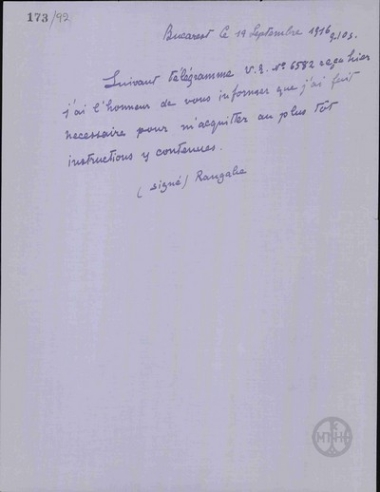 173/92
Bucarest le 19 Septembre 1916
Suivant télégramme V.E. No 6582 reçu hier
j'ai l'honneur de vous informer que j'ai fait
necessaire pour m'acquitter au plus tôt
instructions y contenues.
(signé) Rangabe